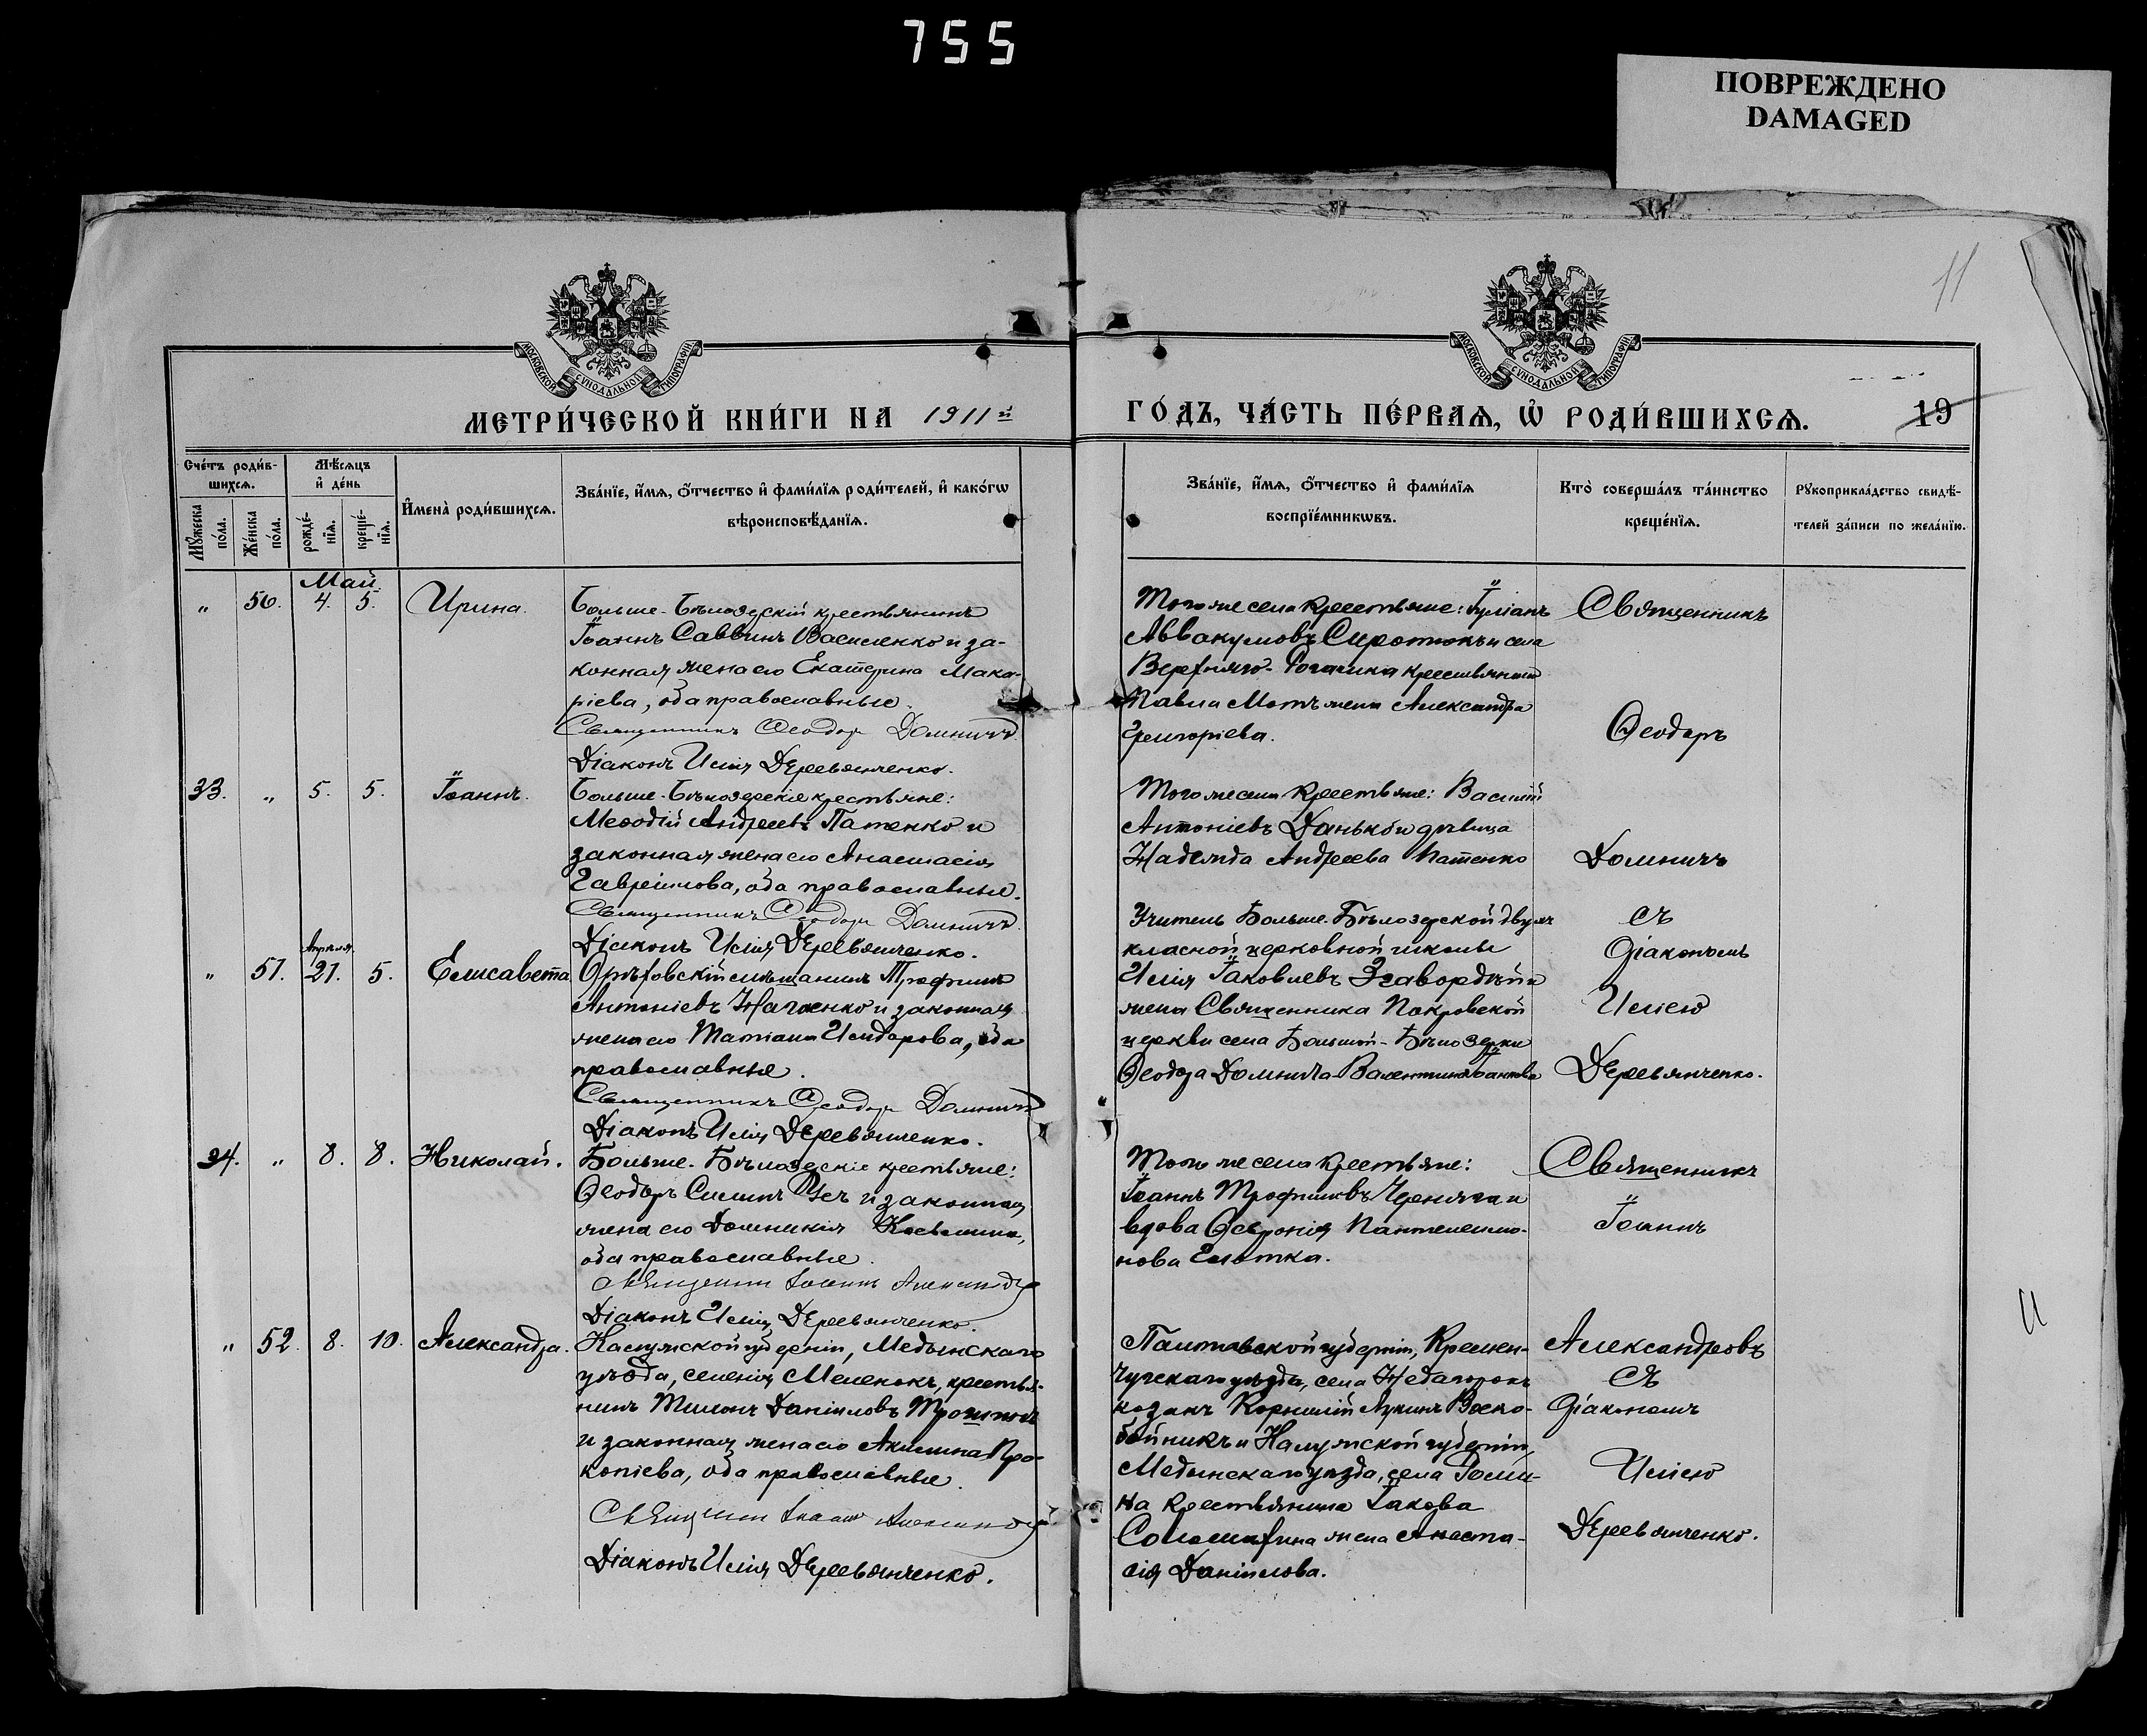 755
ПОВРЕЖДЕНО
DAMAGED
11
МОСКОВСКОЙ СѴНОДАЛЬНОЙ ТИПОГРАФІИ
МОСКОВСКОЙ СѴНОДАЛЬНОЙ ТИПОГРАФІИ
МЕТРИ́ЧЕСКОЙ КНИ́ГИ НА 1911й
ГО́ДЪ, ЧА́СТЬ ПЕ́РВАѦ, Ѡ҆ РОДИ́ВШИХСѦ. 19
Сче́тъ роди́в-
шихсѧ.
Мꙋ́жеска по́ла.
Же́нска по́ла.
Мѣ́сѧцъ
и҆ де́нь
рожде́-
нїѧ.
креще́-
нїѧ.
И҆мена̀ роди́вшихсѧ.
Зва́нїе, и҆́мѧ, ѻ҆́тчество и҆ фами́лїѧ роди́телей, и҆ како́гѡ
вѣроисповѣ́данїѧ.
Зва́нїе, и҆́мѧ, ѻ҆́тчество и҆ фами́лїѧ
воспрїе́мникѡвъ.
Кто̀ соверша́лъ та́инство
креще́нїѧ.
Рꙋкоприкла́дство свидѣ́-
телей за́писи по жела́нїю.
Май
" 50. 4. 5. Ирина.
Больше-Бѣлозерскій крестьянинъ
Іоаннъ Саввинъ Василенко и за-
конная жена его Екатерина Мака-
ріева, оба православные.
Священникъ Ѳеодоръ Домничъ
Діаконъ Илія Деревянченко.
Того же села крестьяне: Іуліанъ
Аввакумовъ Сиротюкъ и села
Верхняго-Рогачика крестьянина
Павла Мотъ жена Александра
Григоріева.
Священникъ
Ѳеодоръ
33. " 5. 5. Іоаннъ.
Больше-Бѣлозерскіе крестьяне:
Меѳодій Андреевъ Патенко и
законная жена его Анастасія
Гавріилова, оба православные.
Священникъ Ѳеодоръ Домничъ
Діаконъ Илія Деревянченко.
Того же села крестьяне: Василій
Антоніевъ Данько и дѣвица
Надежда Андреева Патенко
Домничъ
Апрѣля
" 51. 21. 5. Елисавета
Орѣховскій мѣщанинъ Трофимъ
Антоніевъ и законная
жена его Татіана Исидорова, оба
православные.
Священникъ Ѳеодоръ Домничъ
Діаконъ Илія Деревянченко.
Учитель Больше-Бѣлозерской двухъ
класной церковной школы
Илія Іаковлевъ и
жена Священника Покровской
церкви села Большой-Бѣлозерки
Ѳеодора Домнича Валентина Іоаннова
съ
діакономъ
Иліею
Деревянченко.
34. " 8. 8. Николай.
Больше-Бѣлозерскіе крестьяне:
Ѳеодоръ Силинъ и законная
жена его Домникія
оба православные.
Священникъ Іоаннъ Александровъ
Діаконъ Илія Деревянченко.
Того же села крестьяне:
Іоаннъ Трофимовъ Черняга и
вдова Ѳевронія Пантелеимо-
нова
Священникъ
Іоаннъ
" 52. 8. 10. Александра.
Калужской губерніи, Медынскаго
уѣзда, селенія Меленокъ, крестья-
нинъ Даніиловъ
и законная жена его Акилина Про-
копіева, оба православные.
Священникъ Іоаннъ Александровъ
Діаконъ Илія Деревянченко.
Полтавской губерніи, Кремен-
чугскаго уѣзда, села
козакъ Корнилій Лукинъ Воско-
бойникъ и Калужской губерніи,
Медынскаго уѣзда, села
крестьянина Іакова
жена Анаста-
сія Даніилова.
Александровъ
съ
діакономъ
Иліею
Деревянченко.